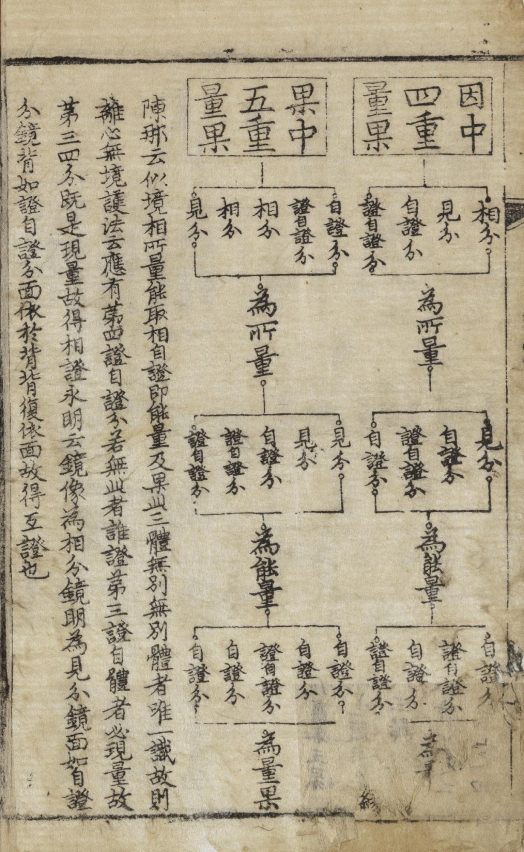 因中
四重
量果
相分
見分
自證分
證自證分
為所量
見分
自證分
證自證分
自證分
為能量
自證分
證自證分
自證分
證自證分
為
果中
五重
量果
自證分
證自證分
相分
相分
見分
為所量
見分
見分
自證分
證自證分
證自證分
為能量
自證分
自證分
證自證分
自證分
自證分
為量果
陳那云似境相所量能取相自證即能量及果此三體無別無別體者唯一識故則
離心無境護法云應有第四證自證分若無此者誰證第三證自體者必現量故
第三四分既是現量故得相證永明云鏡像為相分鏡明為見分鏡面如自證
分鏡背如證自證分面依於背背復依面故得互證也